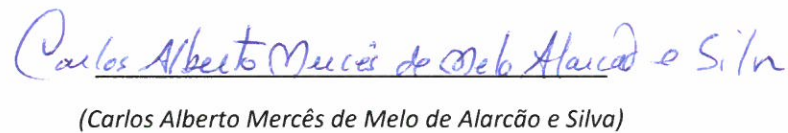 Carlos Alberto Mercês de Melo Alarcão e Silva
(Carlos Alberto Mercês de Melo de Alarcão e Silva)